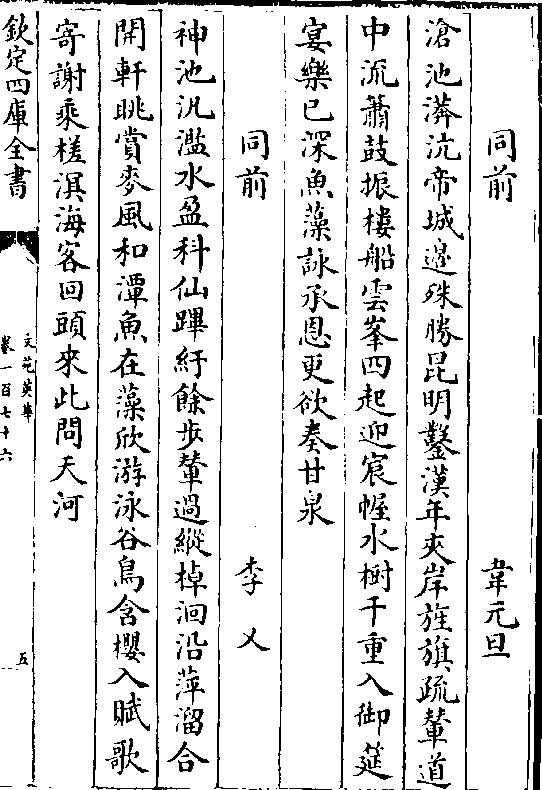 同前　韋元旦
滄池漭沆帝城邊殊勝昆明鑿漢年夾岸旌旗疏輦道
中流蕭鼓振樓船雲峯四起迎宸幄水樹千重入御筵
宴樂已深魚藻詠承恩更欲奏甘泉
同前　李乂
神池汎濫水盈科仙蹕紆餘步輦過縱棹洄沿萍溜合
開軒眺賞麥風和潭魚在藻欣游泳谷鳥含櫻入賦歌
寄謝乘槎溟海客回頭來此問天河
欽定四庫全書
文苑英華
卷一百七十六
五